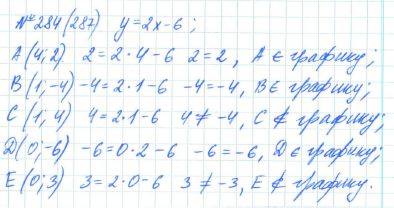 № 284 (287) y = 2x - 6 ;
A (4; 2) 2 = 2 · 4 - 6 2 = 2 , A ∈ графику ;
B (1; -4) -4 = 2 · 1 - 6 -4 = -4, B ∈ графику ;
C (1; 4) 4 = 2 · 1 - 6 4 ≠ -4, C ∉ графику ;
D (0; -6) -6 = 0 · 2 - 6 -6 = -6, D ∈ графику ;
E (0; 3) 3 = 2 · 0 - 6 3 ≠ -3, E ∉ графику.